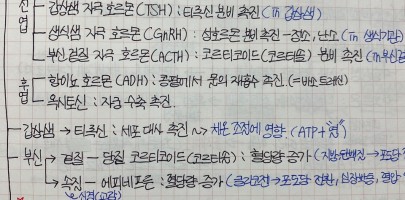 전엽 - 갑상샘 자극 호르몬(TSH) : 티록신 분비 촉진 (In 갑상샘)
- 생식샘 자극 호르몬 (GnRH) : 성호르몬 분비 촉진 - 정소, 난소 (In 생식기관)
- 부신 겉질 자극 호르몬(ACTH) : 코르티코이드(코르티솔) 분비 촉진 (In 부신겉
후엽 - 항이뇨 호르몬 (ADH) : 콩팥에서 물의 재흡수 촉진. (=바소프레신)
- 옥시토신 : 자궁 수축 촉진.
- 갑상샘 → 티록신 : 세포 대사 촉진 ~> 체온 조절에 영향. (ATP+"열")
- 부신 → 겉질 - 당질 코르티코이드(코르티솔) : 혈당량 증가 (지방,단백질 → 포도당
→ 속질 - 에피네프린 : 혈당량 증가 (글리코젠 → 포도당 전환, 심장박동, 혈압
신경(교감)